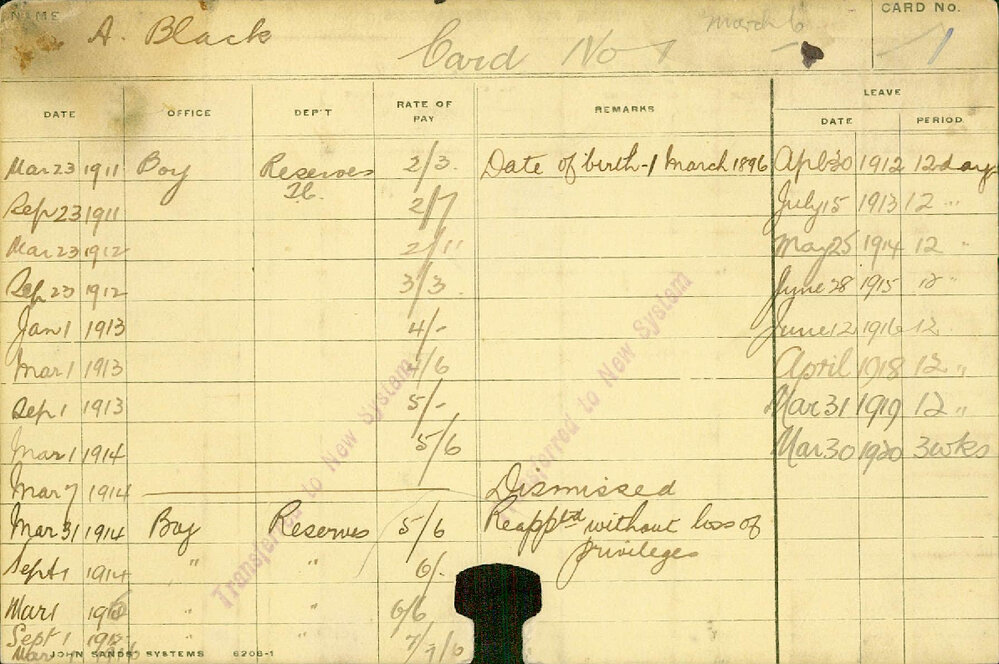 NAME A. Black Card No 1 March 6 CARD No. 1
DATE OFFICE DEP'T RATE OF PAY REMARKS LEAVE
DATE PERIOD
Mar 23 1911 Boy Reserves 2/3 Date of birth-1 March 1896 Apl 30 1912 12 days
Sep 23 1911 2/7 July 15 1913 12 "
Mar 23 1912 2/11 May 25 1914 12 "
Sep 23 1912 3/3 June 28 1915 12 "
Jan 1 1913 4/- June 12 1916 12
Mar 1 1913 /6 April 1918 12 "
Sep 1 1913 5/- Mar 31 1919 12 "
Mar 1 1914 5/6 Mar 30 1920 3 wks
Mar 7 1914 Dismissed
Mar 31 1914 Boy Reserves 5/6 Reapptd without loss of
privileges
Sept 1 1914 " " 6/-
Mar 1 " " 6/6
Sept 1 " 7/
Mar 7/6
JOHN SANDS SYSTEMS 6208-1
Transferred to New System
Transferred to New System